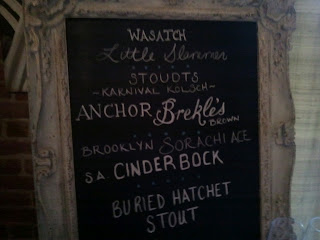 WASATCH
Little Slammer
STOUDTS
~KARNIVAL KOLSCH~
ANCHOR Brekle's
BROWN
BROOKLYN SORACHI ACE
S.A. CINDERBOCK
BURIED HATCHET
STOUT